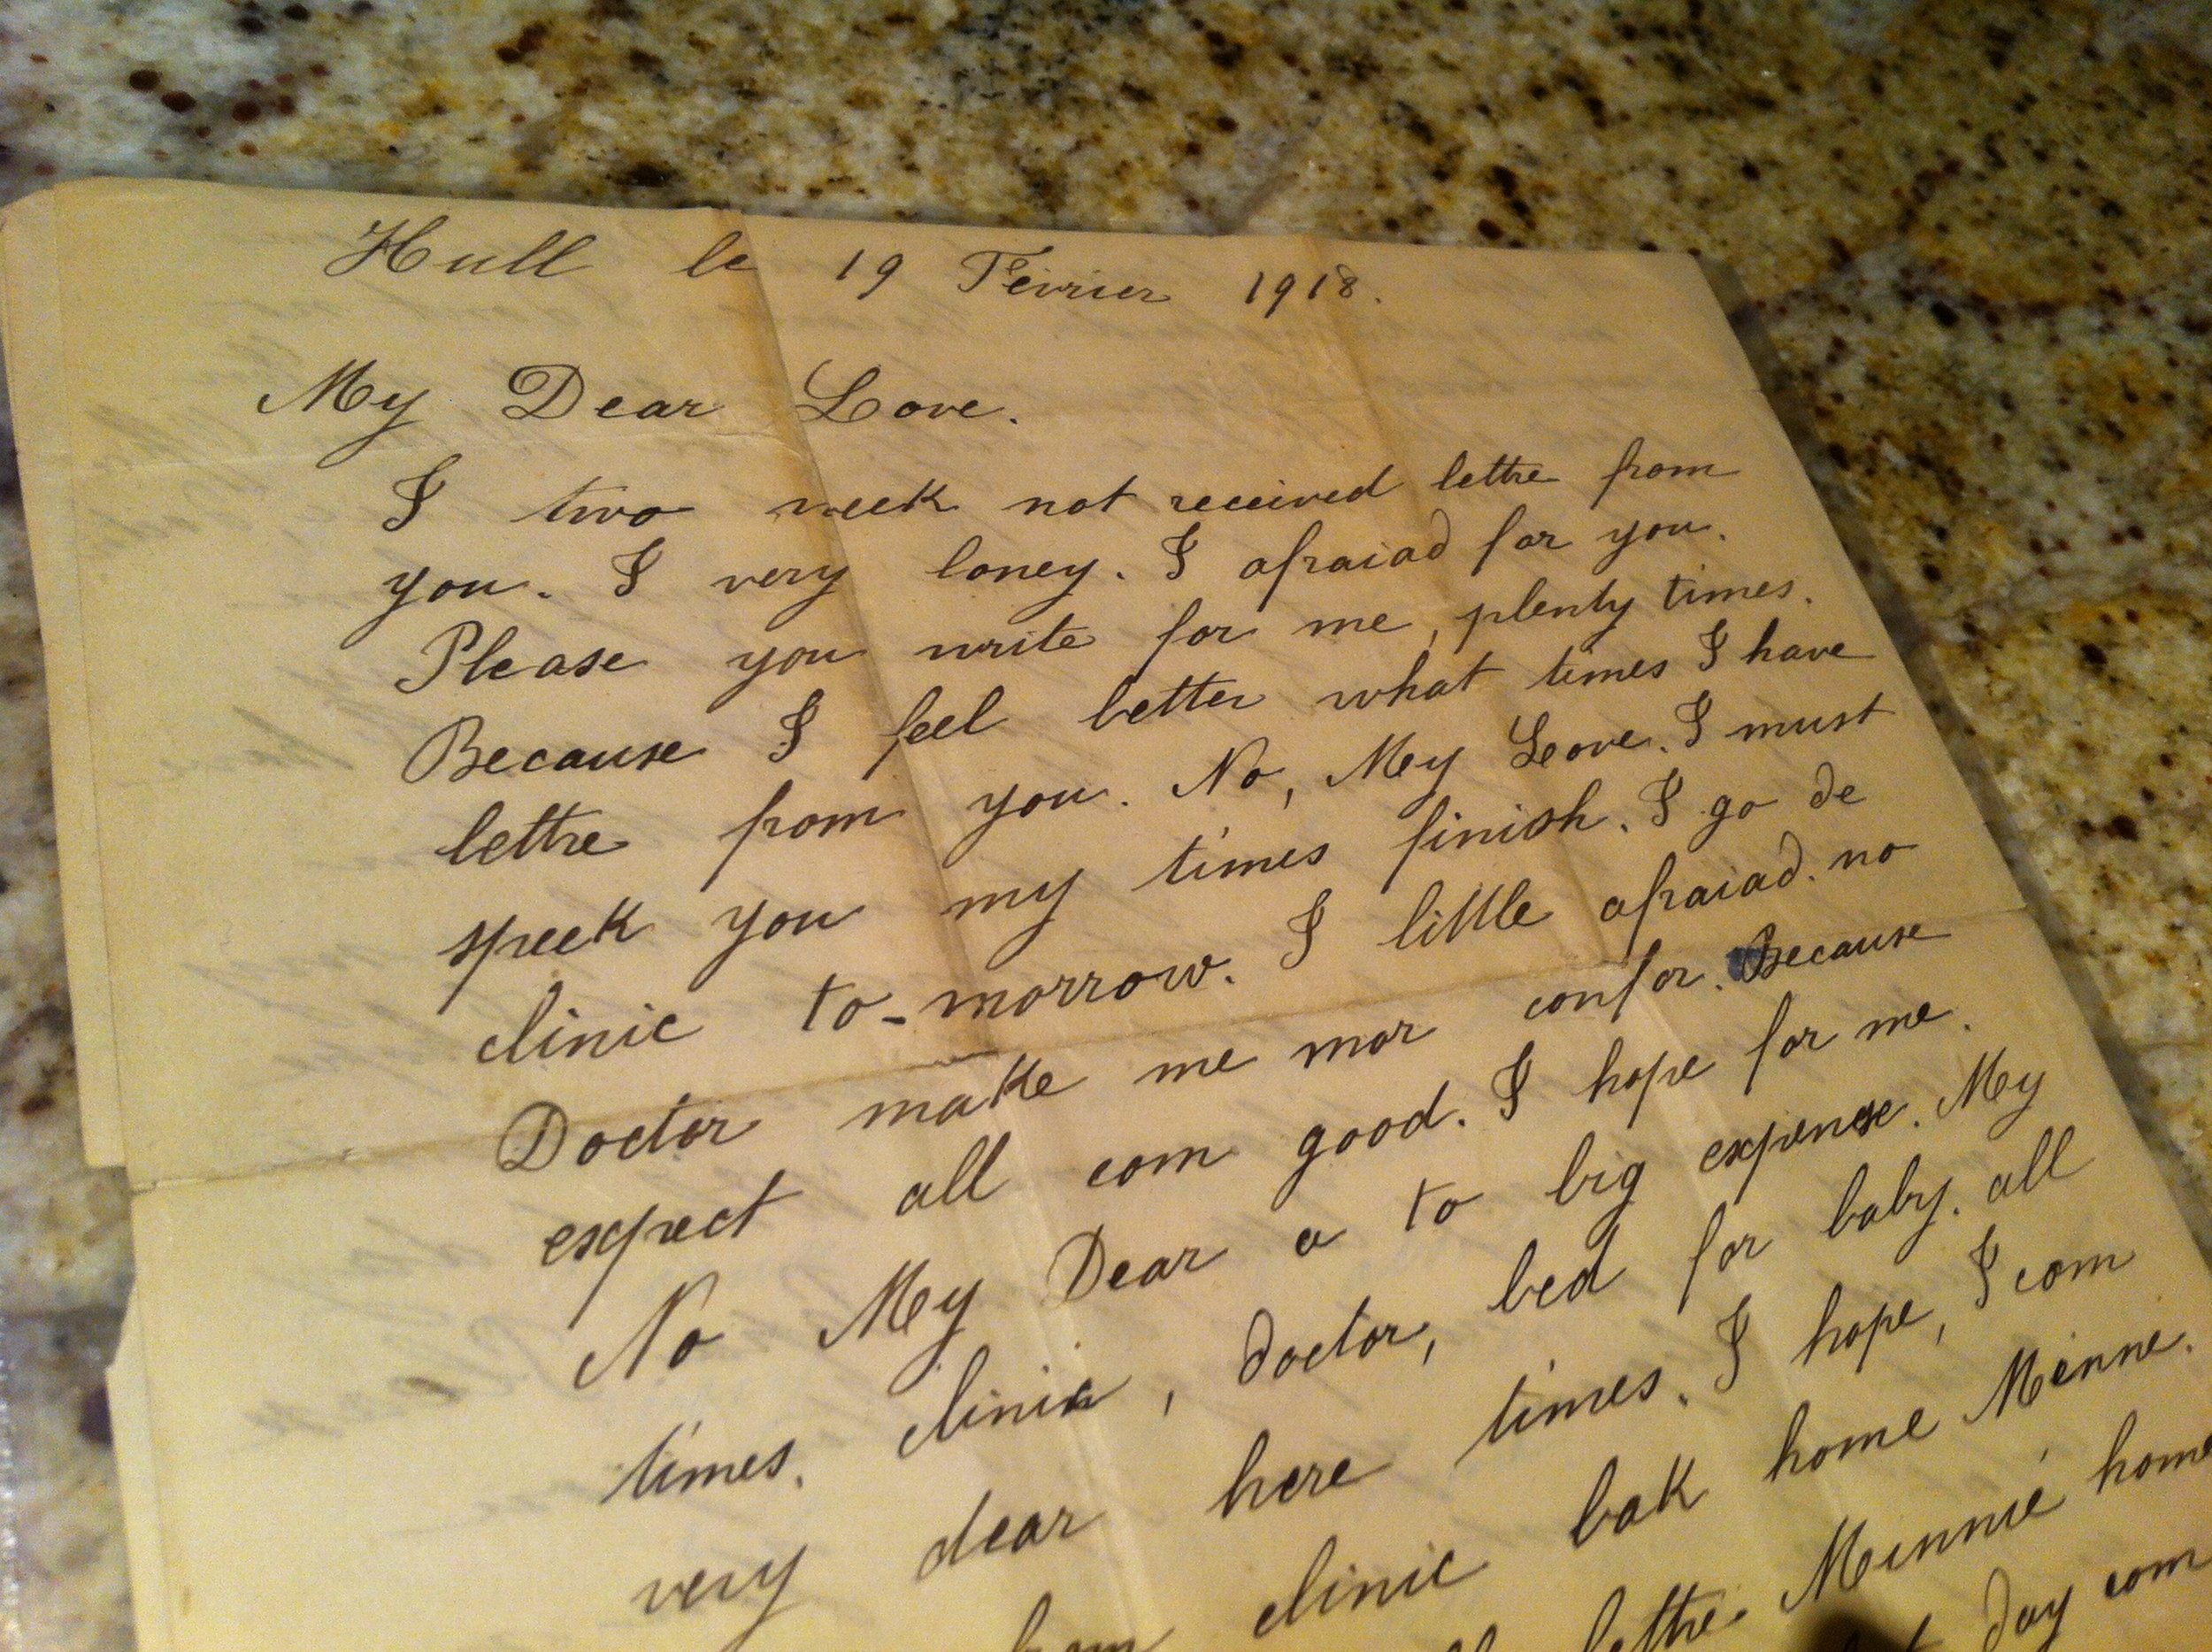 Hull le 19 Février 1918.
My Dear Love.
I two week not received lettre from
you. I very loney. I afraiad for you.
Please you write for me, plenty times.
Because I feel better what times I have
lettre from you. No, My Love. I must
speek you my times finish. I go de
clinic to-morrow. I little afraiad. no
Doctor make me mor confor. Because
expect all com good. I hope for me.
No My Dear a to big expense. My
times. clinic, doctor, bed for baby. all
very dear here times. I hope, I com
from clinic bak home Minne.
lettre Minnie home
day com